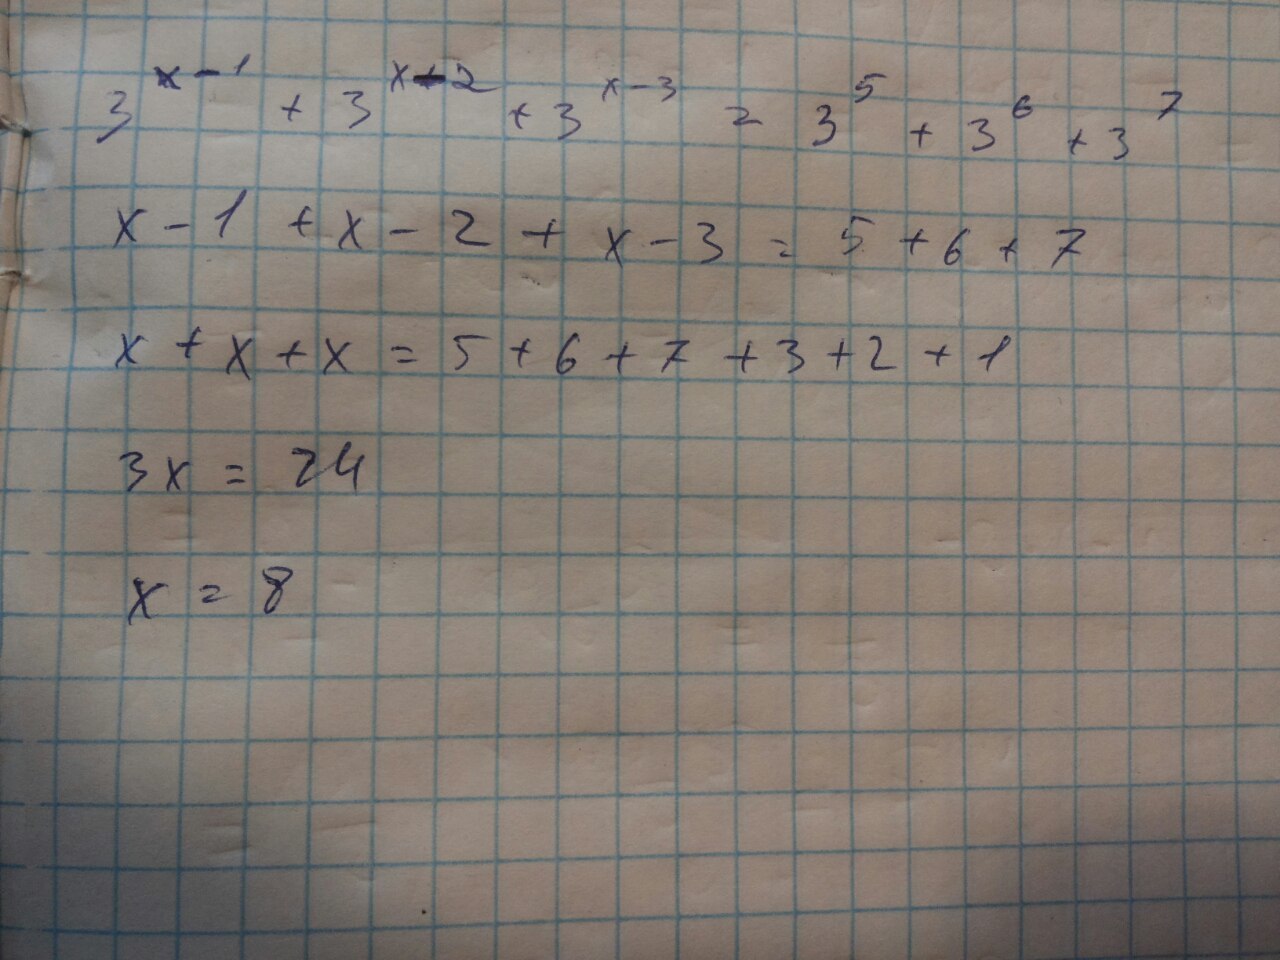 3^{x-1} + 3^{x-2} + 3^{x-3} = 3^5 + 3^6 + 3^7
x - 1 + x - 2 + x - 3 = 5 + 6 + 7
x + x + x = 5 + 6 + 7 + 3 + 2 + 1
3x = 24
x = 8